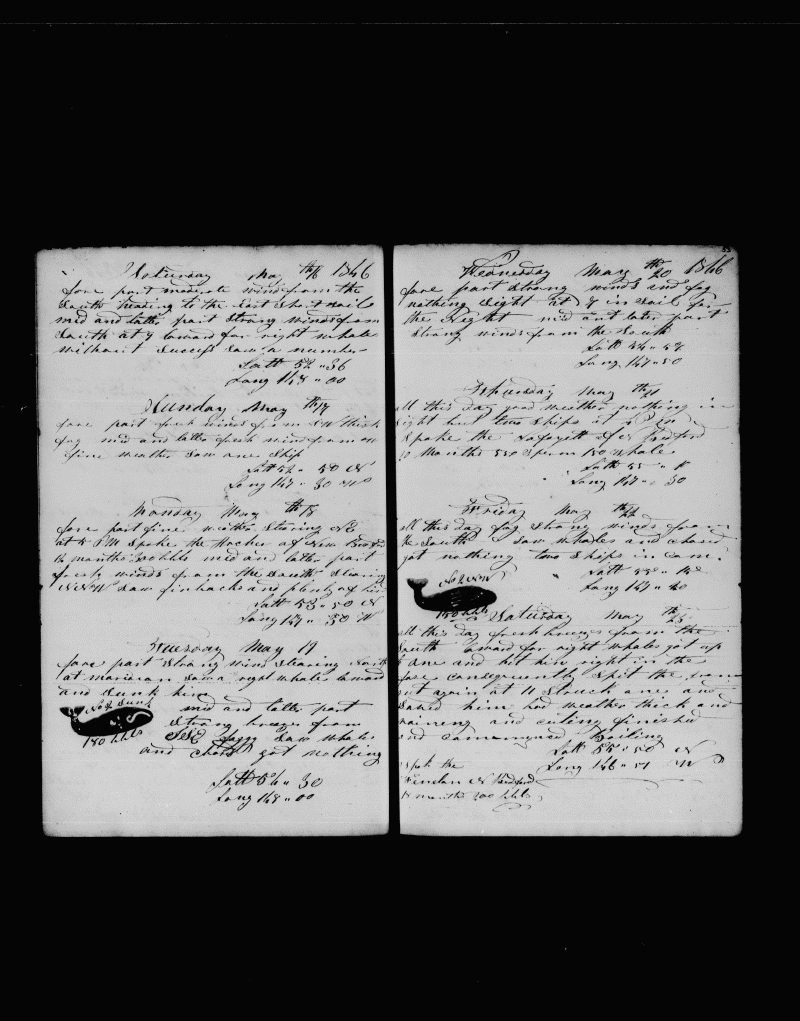 Saturday May 16th 1846
fore part moderate winds from the
South heading to the East Short Sail
mid and latter part Strong winds from
South at 7 lowerd for right whale
without Success Saw a number
Latt 52 " 36
Long 148 " 00
Sunday May 17th
fore part fresh winds from SW thick
fog mid and latter fresh winds from
fine weather Saw one Ship
Latt 52 " 50 N
Long 147 " 30 W
Monday May 18th
fore part fine weather Stearing NE
at 5 PM Spoke the of New Bedford
months bbls mid and latter part
fresh winds from the South Stearing
NNW Saw finbacks and plenty of
Latt 53 " 50 N
Long 147 " 30 W
Tuesday May 19
fore part Strong wind Stearing North
at maridian Saw a right whale lowerd
and Sunk him
No 1 Sunk
180 bbls
mid and latter part
Strong breezes from
SSE foggy Saw whales
and Chased got nothing
Latt 54 " 30
Long 148 " 00
53
Wednesday May 20th 1846
fore part Strong winds and fog
nothing Sight at 7 in Sail for
the Night mid and later part
Strong winds from the South
Latt 54 " 58
Long 147 " 50
Thursday May 21th
all this day good weather nothing in
Sight but two Ships at
Spoke the Lafayett of N Bedford
10 Months 550 Sperm 150 whale
Latt 55 "
Long 147 " 30
Friday May 22th
all this day fog Strong winds from
the South Saw whales and chased
got nothing two Ships in Com.
Latt 55
Long 147 " 20
No 2 NW
150 bbls
Saturday May 23th
all this day fresh breezes from the
South lowerd for right whales got up
to one and hit him right in the
fore consequently Spit the
out again at 11 Struck one and
Saved him had weather thick and
raineny and cuting finished
and commenced Boiling
Latt 55 " 50 N
Long 146 " 51 W
Spok the
N Bedford
months 200 bbls